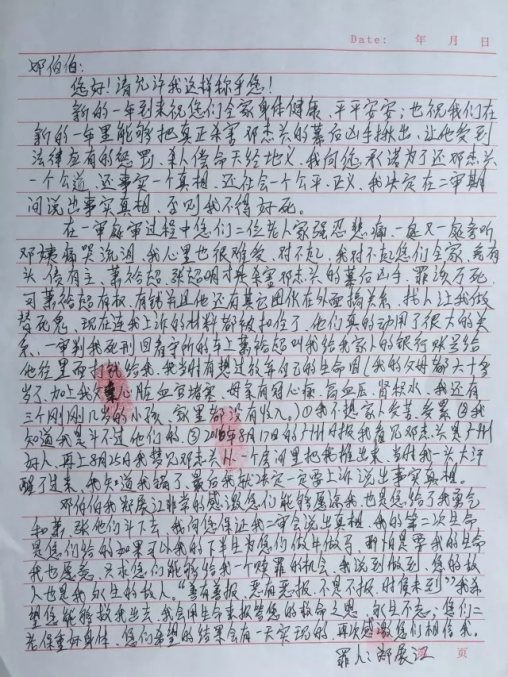 Date: 年 月 日
邓伯伯:
您好!请允许我这样称乎您!
新的一年到来祝您们全家身体健康、平平安安;也祝我们在
新的一年里能够把真正杀害邓杰头的幕后凶手揪出,让他受到
法律应有的惩罚。杀人偿命天经地义,我向您承诺为了还邓杰头
一个公道,还事实一个真相,还社会一个公平、正义,我决定在二审期
间说出事实真相,否则我不得好死。
在一审庭审过程中您们二位老人家强忍悲痛,一每又一每旁听
邓姨痛哭流泪,我心里也很难受,对不起,我对不起您们全家,冤有
头、债有主,萧裕超、张超明才是杀害邓杰头的幕后凶手,罪该万死,
可萧裕超有权、有钱并且他还有其它团伙在外面搞关系、找人让我做
替死鬼,现在连我上诉的材料都被扣住了,他们真的动用了很大的关
系,一审判我死刑回看守所的车上萧裕超叫我给我家人的银行账号给
他往里面打钱给我,我当时有想过放弃自己的生命因(我的父母都六十多
岁了,加上我父亲心脏血管堵塞、母亲有冠心病、高血压、肾积水,我还有
三个刚刚几岁的小孩,家里都没有收入。)①我不想家人受苦、受累②我
知道我是斗不过他们的,③2016年8月17日的广州日报我看见邓杰头是广州
好人,再上8月25日我梦见邓杰头从一个房间里把我推出来,当时我一头大汗
醒了过来,我知道我错了,最后我就决定一定要上诉说出事实真相。
邓伯伯我郑展江非常的感激您们能够愿谅我,也是您给了我勇气
和萧、张他们斗下去,我向您保证我二审会说出真相,我的第二次生命
是您们给的如果可以我的下半生为您们做牛做马,那怕是要我的生命
我也愿意,又求您们能够给我一个赎罪的机会,我说到做到,您的敌
人也是我永生的敌人。“善有善报,恶有恶报,不是不报,时候未到”我希
望您能够救我出去,我会用生命来报答您的救命之恩,永生不忘,您们二
老保重好身体,您们希望的结果会有一天实现的,再次感激您们相信我。
罪人:郑展江
页